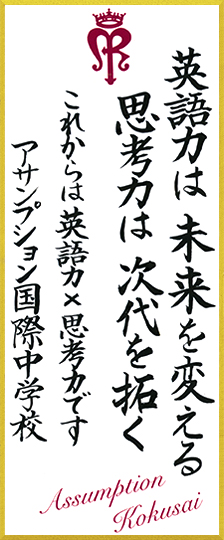 英語力は 未来を変える
思考力は 次代を拓く
これからは 英語力×思考力です
アサンプション国際中学校
Assumption
Kokusai